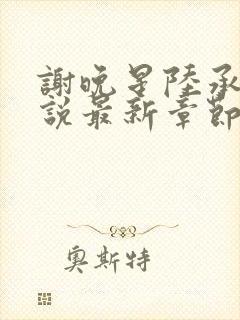 謝晚星陸承
說最新章節
奧斯特